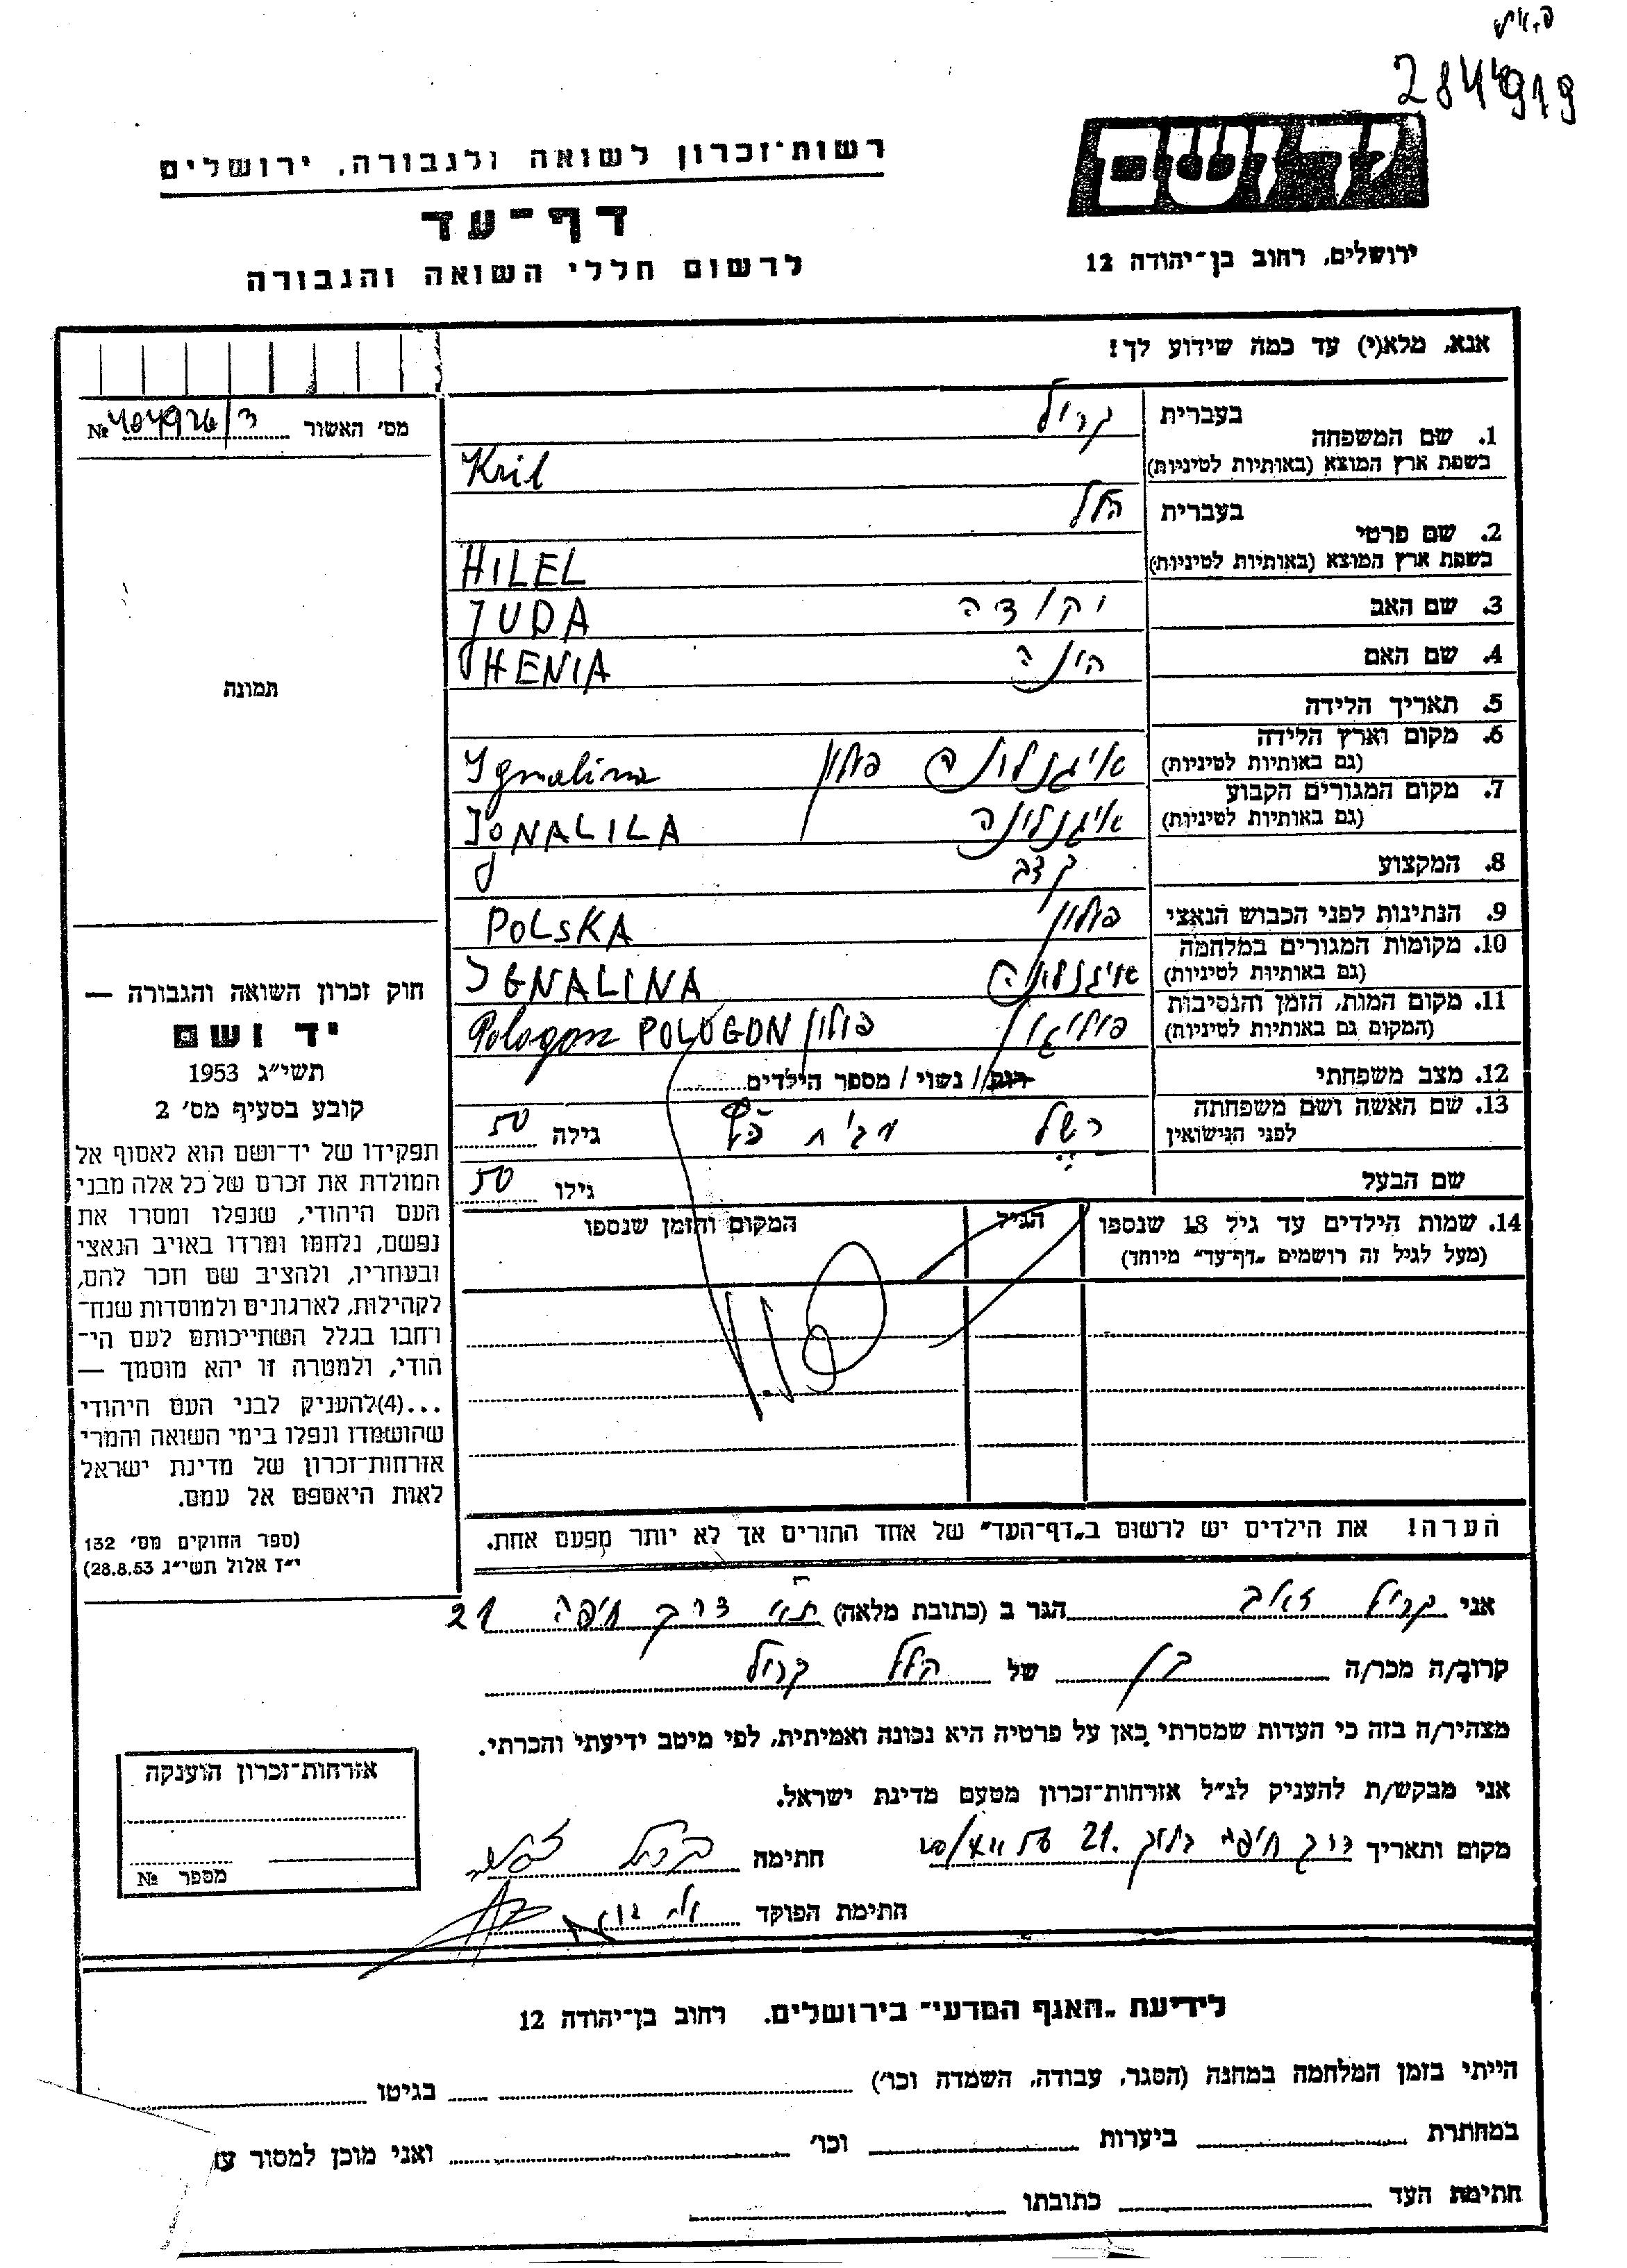 2844919
יד ושם
ירושלים, רחוב בן־יהודה 12
רשות־זכרון לשואה ולגבורה, ירושלים
דף־עד
לרשום חללי השואה והגבורה
אנא, מלא(י) עד כמה שידוע לך!
מס׳ האשור №
1. שם המשפחה בעברית קריל
בשפת ארץ המוצא (באותיות לטיניות) Kril
2. שם פרטי בעברית הלל
בשפת ארץ המוצא (באותיות לטיניות) HILEL
3. שם האב יהודה JUDA
4. שם האם הניה HENIA
5. תאריך הלידה
6. מקום וארץ הלידה
(גם באותיות לטיניות) איגנלינה פולין Ignalina
7. מקום המגורים הקבוע
(גם באותיות לטיניות) איגנלינה IGNALILA
8. המקצוע קצב
9. הנתינות לפני הכבוש הנאצי פולין POLSKA
10. מקומות המגורים במלחמה
(גם באותיות לטיניות) איגנלינה IGNALINA
11. מקום המות, הזמן והנסיבות
(המקום גם באותיות לטיניות) פוליגון פולין POLOGON Pologon
12. מצב משפחתי רווק / נשוי / מספר הילדים
13. שם האשה ושם משפחתה
לפני הנישואין רשל גילה 50
שם הבעל גילו 50
14. שמות הילדים עד גיל 18 שנספו הגיל המקום והזמן שנספו
(מעל לגיל זה רושמים „דף־עד״ מיוחד)
הערה! את הילדים יש לרשום ב„דף־העד״ של אחד ההורים אך לא יותר מפעם אחת.
תמונה
חוק זכרון השואה והגבורה —
יד ושם
תשי״ג 1953
קובע בסעיף מס׳ 2
תפקידו של יד־ושם הוא לאסוף אל
המולדת את זכרם של כל אלה מבני
העם היהודי, שנפלו ומסרו את
נפשם, נלחמו ומרדו באויב הנאצי
ובעוזריו, ולהציב שם וזכר להם,
לקהילות, לארגונים ולמוסדות שנח־
רחבו בגלל השתייכותם לעם הי־
הודי, ולמטרה זו יהא מוסמך —
...(4)להעניק לבני העם היהודי
שהושמדו ונפלו בימי השואה והמרי
אזרחות־זכרון של מדינת ישראל
לאות היאספם אל עמם.
(ספר החוקים מס׳ 132
י״ז אלול תשי״ג 28.8.53)
אני קריל זאב הגר ב (כתובת מלאה) תא דרך חיפה 21
קרוב/ה מכר/ה בן של הלל קריל
מצהיר/ה בזה כי העדות שמסרתי כאן על פרטיה היא נכונה ואמיתית, לפי מיטב ידיעתי והכרתי.
אני מבקש/ת להעניק לנ״ל אזרחות־זכרון מטעם מדינת ישראל.
מקום ותאריך דרך חיפה 21 חתימה קריל זאב
חתימת הפוקד
אזרחות־זכרון הוענקה
מספר №
לידיעת „האגף המדעי״ בירושלים. רחוב בן־יהודה 12
הייתי בזמן המלחמה במחנה (הסגר, עבודה, השמדה וכו׳) בגיטו
במחתרת ביערות וכו׳ ואני מוכן למסור עו
חתימת העד כתובתו